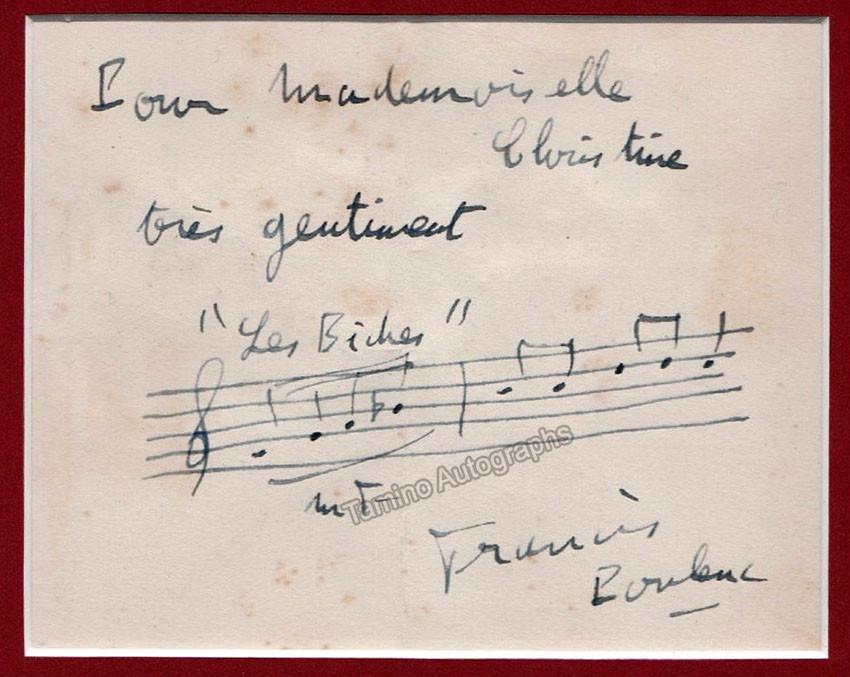 Pour Mademoiselle
Christine
très gentiment
"Les Biches"
mF
Tamino Autographs
Francis
Poulenc